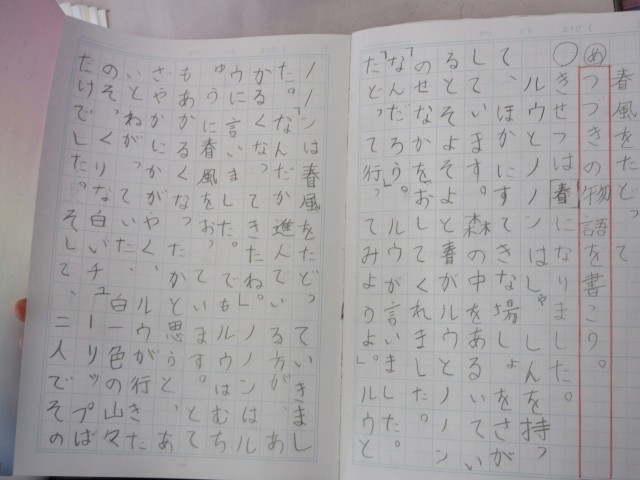 春風をたどって
め つづきの物語を書こう。
○きせつは春になりました。
ルウとノノンはしゃしんを持っ
て、ほかにすてきな場しょをさが
しています。森の中をあるいてい
るとそよそよと春がルウとノノン
のせなかをおしてくれました。
「なんだろう」。ルウが言いました。
「たどって行ってみようよ」。ルウと
ノノンは春風をたどっていきまし
た。「なんだか進んでいる方が、あ
かるくなってきたね」ノノンはル
ウに言いました。でもルウはむち
ゅうに春風をおっています。とて
もあかるくなったかと思うと、あ
さやかにかがやく、ルウが行きた
いとねがっていた、白一色の山々
のそっくりな白いチューリップば
たけでした。そして、二人でその